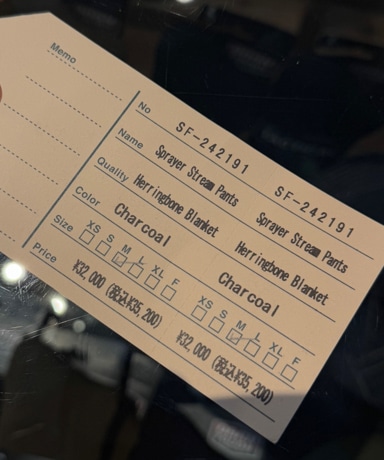 Memo
No SF-242191 SF-242191
Name Sprayer Stream Pants Sprayer Stream Pants
Quality Herringbone Blanket Herringbone Blanket
Color Charcoal Charcoal
Size XS S M L XL F XS S M L XL F
Price ¥32,000 (税込¥35,200) ¥32,000 (税込¥35,200)